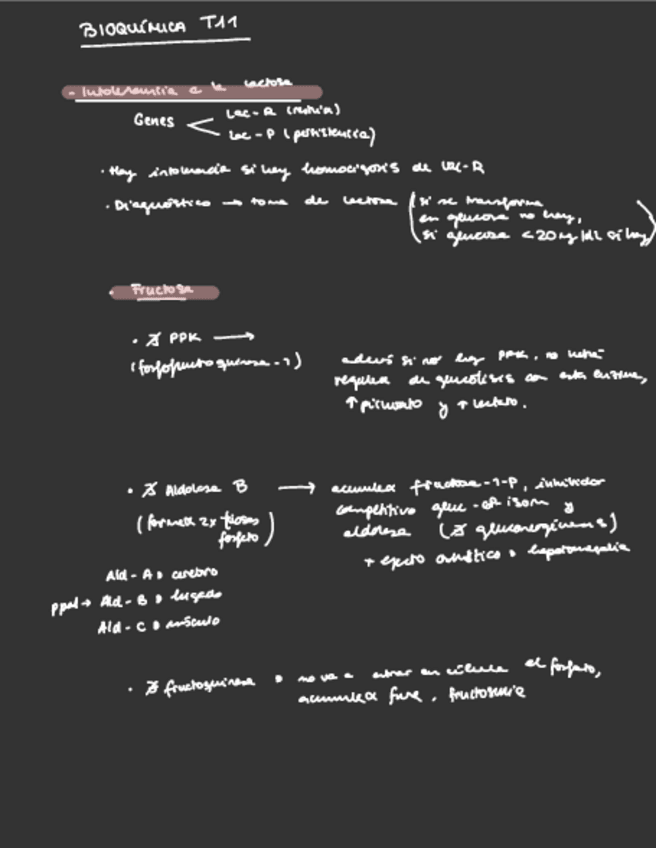 BIOQUÍMICA T11
- Intolerancia a la lactosa
Genes
Lac-R (restricia)
Lac-P (persistencia)
· Hay intolerancia si hay homocigosis de Lac-R
· Diagnóstico → toma de lactosa (si se transforma
en glucosa no hay,
si glucosa <20mg/dL si hay)
· Fructosa
· PPK →
(fosfofructoquinasa-1)
además si no hay PPK, no habrá
regulac de glucólisis con esta enzima,
↑ piruvato y ↑ lactato.
· Aldolasa B → acumulax fructosa-1-P, inhibidor
competitivo gluc-6P isom y
aldolasa (gluconeogénesis)
+ efecto osmótico hepatomegalia
(formax 2x triosas
fosfato)
Ald-A cerebro
ppal → Ald-B hígado
Ald-C músculo
· fructoquinasa no va a entrar en célula el fosfato,
acumulax fruc, fructosuria